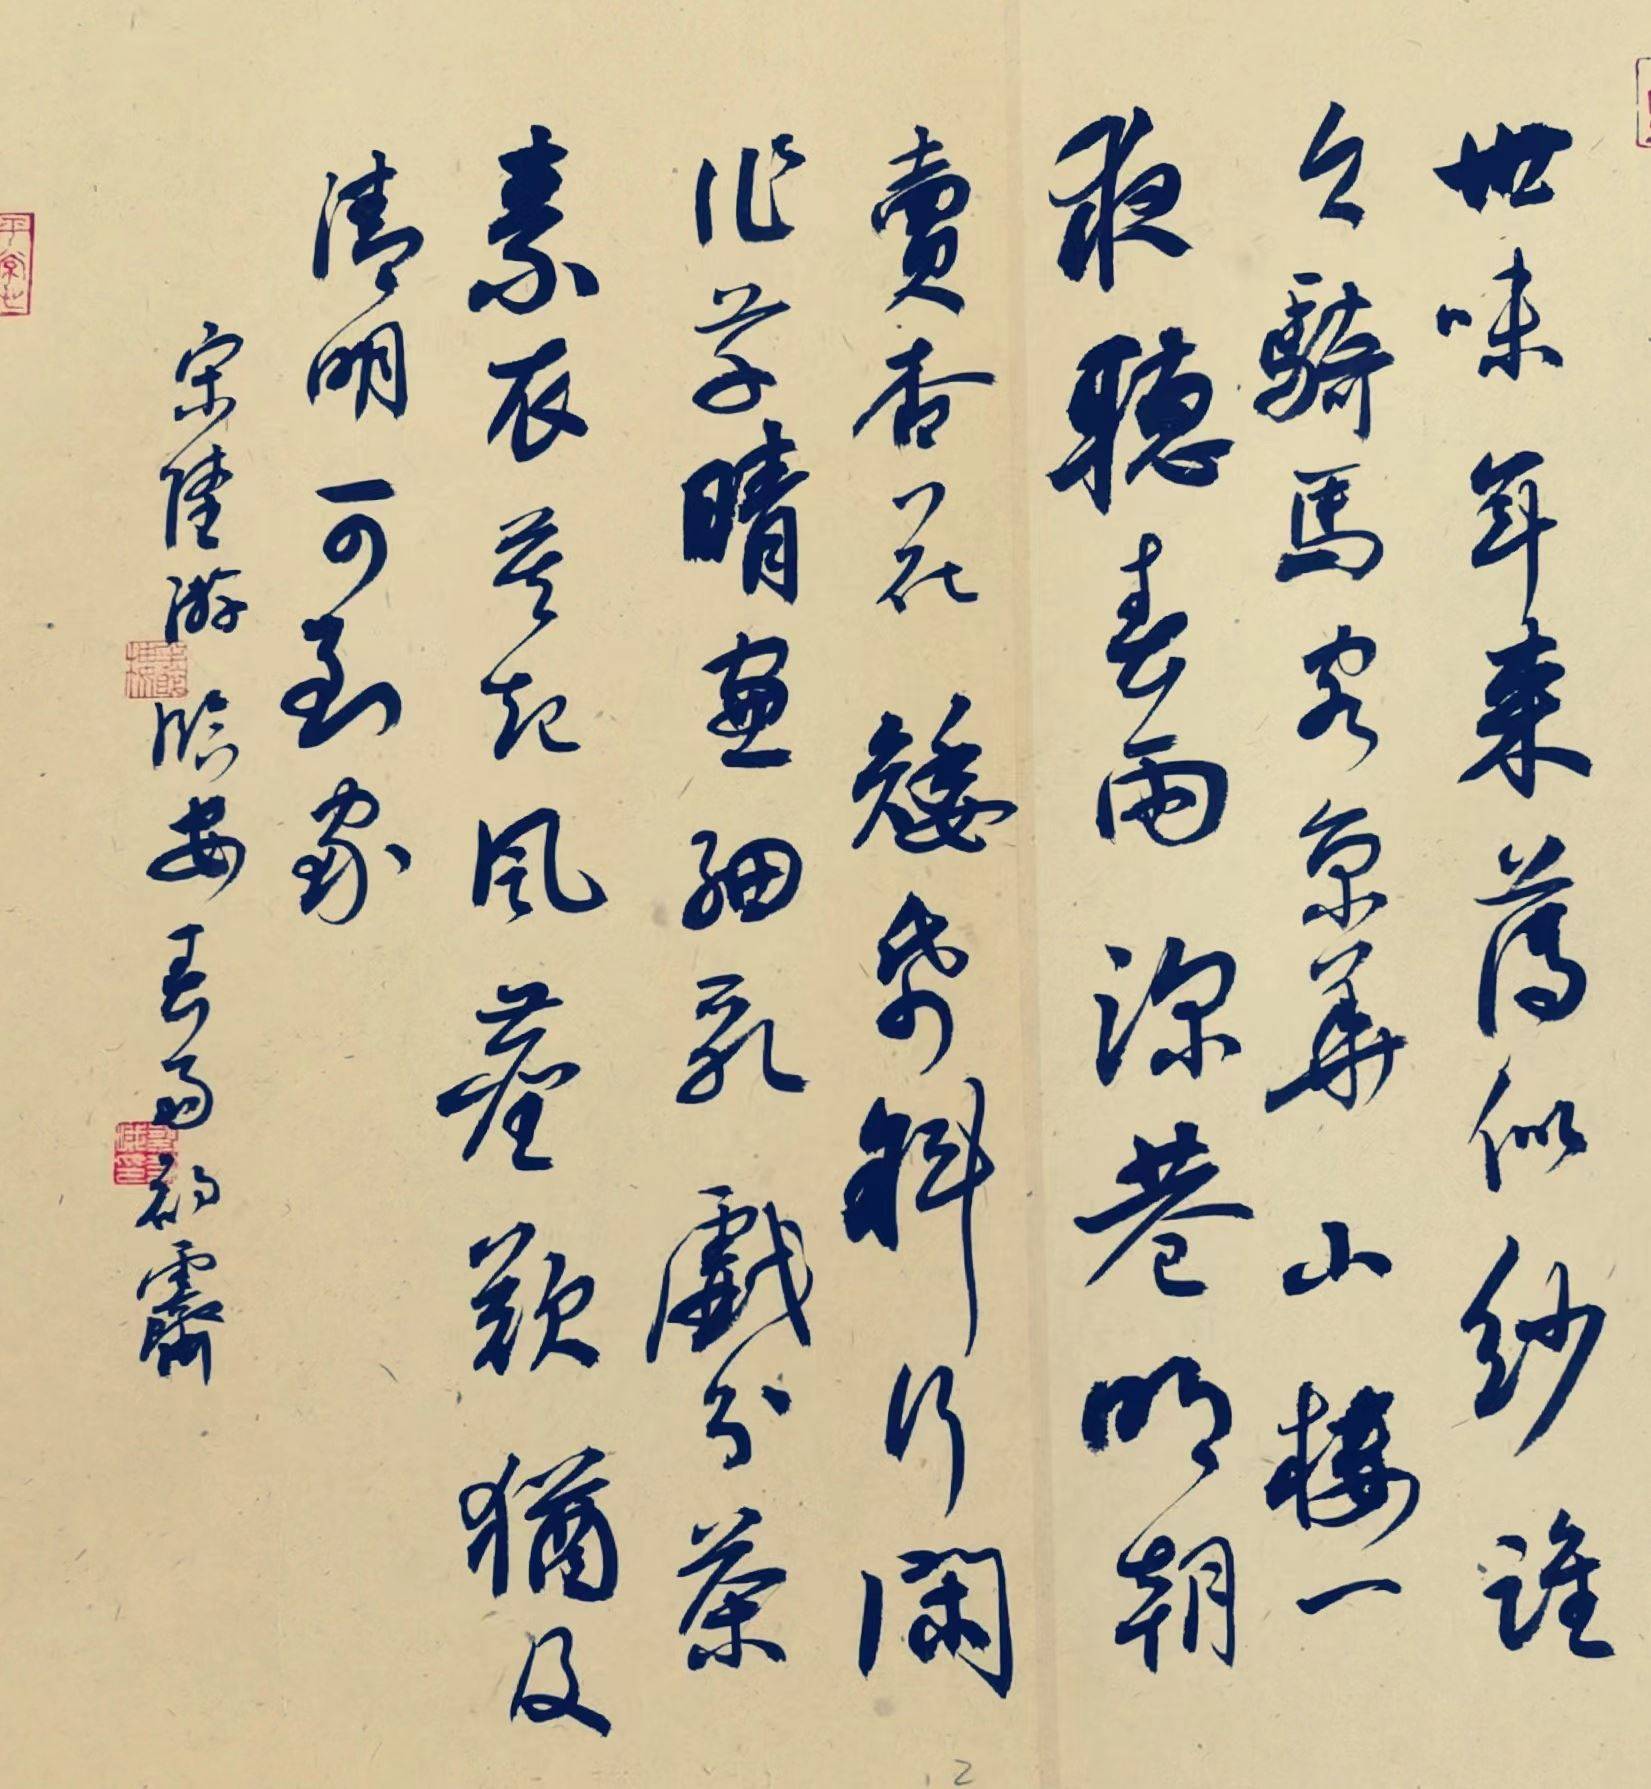 世味年來薄似紗誰
令騎馬客京華小樓一
夜聽春雨深巷明朝
賣杏花矮帋斜行閑
作草晴窗細乳戲分茶
素衣莫起風塵歎猶及
清明可到家
宋陸游臨安春雨初霽
2